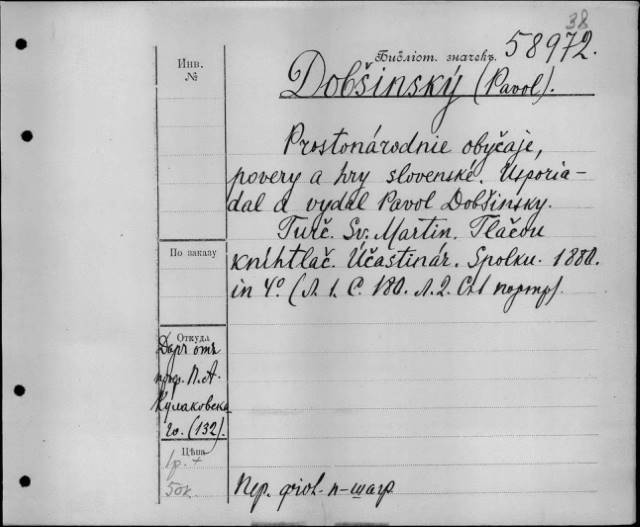 38
Библіот. значекъ 58972.
Инв.
№
Dobšinský (Pavol).
Prostonárodnie obyčaje,
povery a hry slovenské. Usporia-
dal a vydal Pavol Dobšinsky.
Turč. Sv. Martin. Tlačou
knihtlač. Účastinár. Spolku. 1880.
in 4° (Л. 1. С. 180. Л. 2. портр).
По заказу
Откуда
Даръ отъ
проф. П. А.
Кулаковска
го. (132).
Цѣна
1р. +
50к.
Пер. фіол. п-шагр.